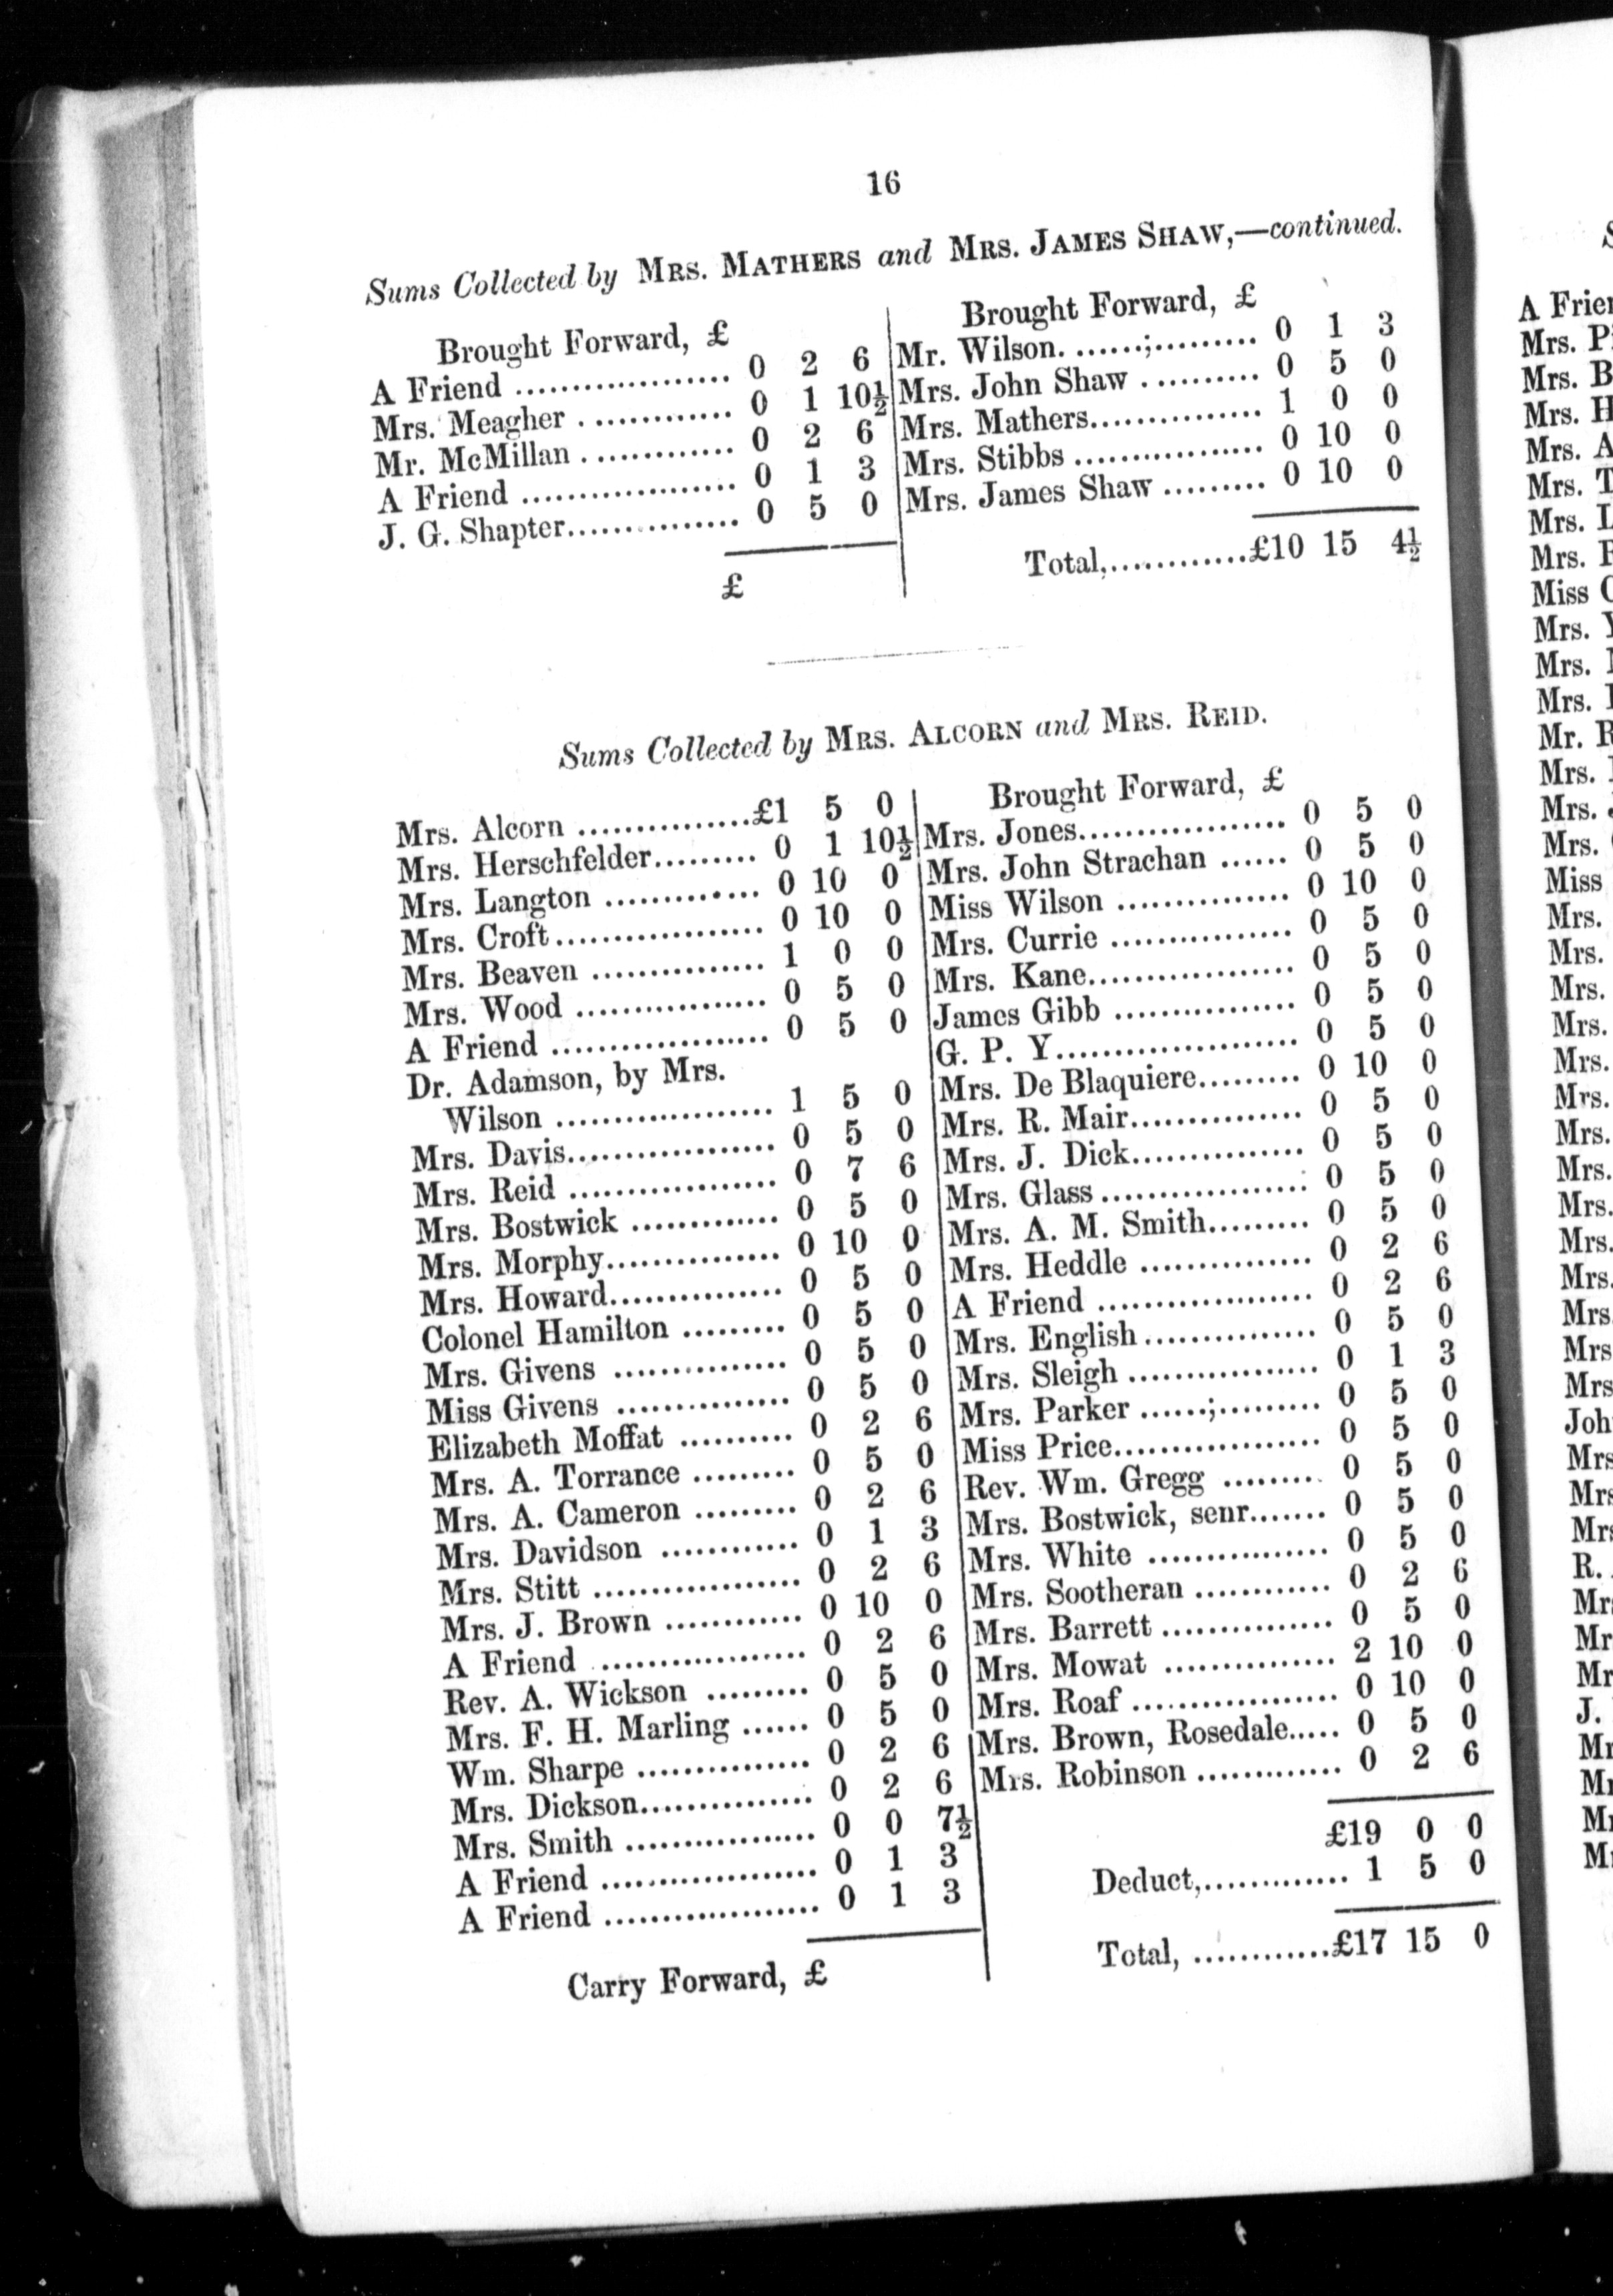 16
Sums Collected by MRS. MATHERS and MRS. JAMES SHAW,—continued.
Brought Forward, £
A Friend ................... 0 2 6
Mrs. Meagher ............. 0 1 10½
Mr. McMillan ............. 0 2 6
A Friend ................... 0 1 3
J. G. Shapter............... 0 5 0
£
Brought Forward, £
Mr. Wilson. ......;......... 0 1 3
Mrs. John Shaw .......... 0 5 0
Mrs. Mathers............... 1 0 0
Mrs. Stibbs ................. 0 10 0
Mrs. James Shaw ......... 0 10 0
Total,............£10 15 4½
Sums Collected by MRS. ALCORN and MRS. REID.
Mrs. Alcorn ...............£1 5 0
Mrs. Herschfelder......... 0 1 10½
Mrs. Langton .............. 0 10 0
Mrs. Croft.................. 0 10 0
Mrs. Beaven ............... 1 0 0
Mrs. Wood ................. 0 5 0
A Friend ................... 0 5 0
Dr. Adamson, by Mrs.
Wilson ................... 1 5 0
Mrs. Davis.................. 0 5 0
Mrs. Reid .................. 0 7 6
Mrs. Bostwick ............. 0 5 0
Mrs. Morphy............... 0 10 0
Mrs. Howard............... 0 5 0
Colonel Hamilton ......... 0 5 0
Mrs. Givens ............... 0 5 0
Miss Givens ............... 0 5 0
Elizabeth Moffat .......... 0 2 6
Mrs. A. Torrance ......... 0 5 0
Mrs. A. Cameron ......... 0 2 6
Mrs. Davidson ............ 0 1 3
Mrs. Stitt .................. 0 2 6
Mrs. J. Brown ............ 0 10 0
A Friend .................. 0 2 6
Rev. A. Wickson ......... 0 5 0
Mrs. F. H. Marling ...... 0 5 0
Wm. Sharpe ............... 0 2 6
Mrs. Dickson............... 0 2 6
Mrs. Smith ................. 0 0 7½
A Friend ................... 0 1 3
A Friend ................... 0 1 3
Carry Forward, £
Brought Forward, £
Mrs. Jones.................. 0 5 0
Mrs. John Strachan ...... 0 5 0
Miss Wilson ............... 0 10 0
Mrs. Currie ................ 0 5 0
Mrs. Kane.................. 0 5 0
James Gibb ................ 0 5 0
G. P. Y..................... 0 5 0
Mrs. De Blaquiere......... 0 10 0
Mrs. R. Mair............... 0 5 0
Mrs. J. Dick............... 0 5 0
Mrs. Glass .................. 0 5 0
Mrs. A. M. Smith......... 0 5 0
Mrs. Heddle ............... 0 2 6
A Friend ................... 0 2 6
Mrs. English............... 0 5 0
Mrs. Sleigh ................. 0 1 3
Mrs. Parker ......;......... 0 5 0
Miss Price.................. 0 5 0
Rev. Wm. Gregg ......... 0 5 0
Mrs. Bostwick, senr....... 0 5 0
Mrs. White ................ 0 5 0
Mrs. Sootheran ............ 0 2 6
Mrs. Barrett ............... 0 5 0
Mrs. Mowat ............... 2 10 0
Mrs. Roaf .................. 0 10 0
Mrs. Brown, Rosedale..... 0 5 0
Mrs. Robinson ............. 0 2 6
£19 0 0
Deduct,............. 1 5 0
Total, ............£17 15 0
A
Mrs.
Mrs.
Mrs.
Mrs.
Mrs.
Mrs.
Mrs.
Miss
Mrs.
Mrs.
Mrs.
Mr.
Mrs.
Mrs.
Mrs.
Miss
Mrs.
Mrs.
Mrs.
Mrs.
Mrs.
Mrs.
Mrs.
Mrs.
Mrs.
Mrs.
Mrs.
R.
J.